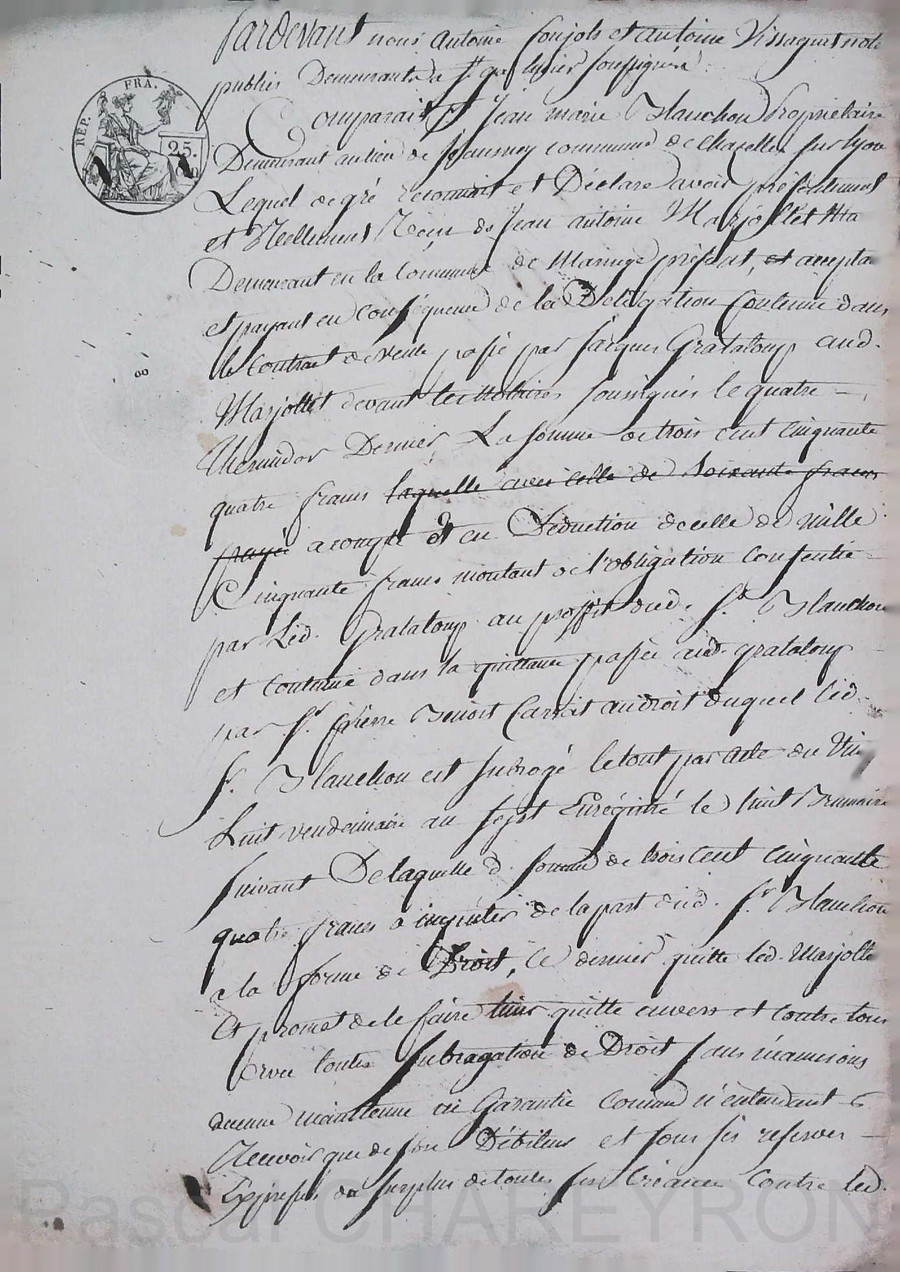 REP. FRA.
25.
Pardevant nous Antoine Coujols et antoine Vissaguet not
publics Demeurants a St. galmier soussignés.
Comparait St. Jean marie Blanchon Proprietaire
Demeurant au lieu de commune de Chazelles sur lyon
Lequel de gré reconnait et Déclare avoir présentement
et Réellement Reçu de Jean antoine Marjollet
Demeurant en la Commune de présent, et accepta
et payant en conséquence de la Délégation contenue dans
le Contrat de vente passé par Jacques Grataloup aud.
Marjollet devant les Notaires soussignés le quatre
thermidor Dernier, La somme de trois cent cinquante
quatre francs laquelle avec celle de soixante francs
payé a compte Et en Déduction de celle de mille
Cinquante francs montant de l'obligation consentie
par Led. Grataloup au proffit dud. Sr. Blanchon
et contenue dans la quittance passée aud. grataloup
par Sr. pierre Benoit au droit duquel led.
Sr. Blanchon est subrogé le tout par acte du Vin
huit vendemiaire an sept Enrégistré le huit Brumaire
suivant De laquelle d. somme de trois cent cinquante
quatre francs a imputer de la part dud. Sr. Blanchon
a la forme de Droit, Ce dernier quitte led. Marjolle
Et promet de le faire tenir quitte envers et contre tous
avec toutes subrogations de Droit sans néamoins
aucune maintenue ni Garantie Comme n'entendant
Recevoir que de son Débiteur et sous ses reserves
Expresses du surplus de toutes ses Créances Contre led.
Pascal CHAREYRON